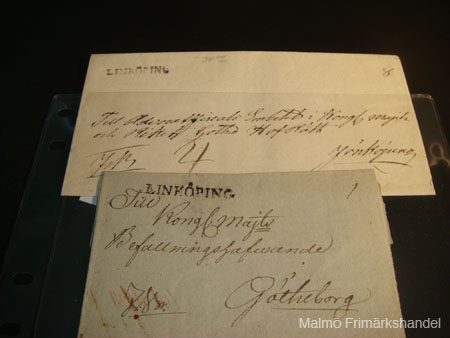 LINKÖPING
Till Advocatfiscals Embetet i Kongl. Majts
och Rikets Götha Hof Rätt
4 Jönköping
LINKÖPING
1
Till
Kongl. Majts
Befallningshafwande
Götheborg
Malmö Frimärkshandel